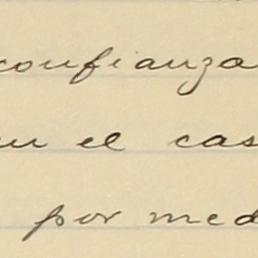 confianza
en el cas
por med